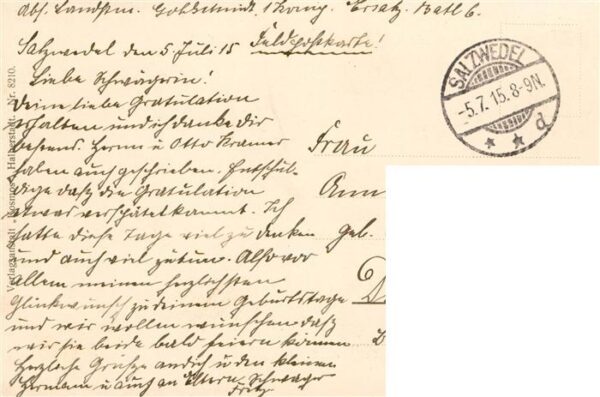 Abs. Landstm. Goldschmidt, 1 Komp. Ersatz. Batl 6.
Salzwedel den 5 Juli 15 Feldpostkarte!
Liebe Schwägerin!
Deine liebe Gratulation
erhalten und ich danke dir
bestens. Herm u Otto Kramer
haben auch geschrieben. Entschul-
dige dasz die Gratulation
etwas verspätet kommt. Ich
hatte diese Tage viel zu denken
und auch viel zutun. Also vor
allem meinen herzlichsten
Glückwunsch zu deinem Geburtstage
und wir wollen wünschen dasz
wir sie beide bald feiern können
Herzliche Grüsze an dich u den kleinen
Hermann u auch an Eltern Schwager
Fritz
Frau
Ann
Geb.
SALZWEDEL
-5.7.15.8-9N.
* * d
Verlagsanstalt „Kosmos“, Halberstadt. Nr. 8210.